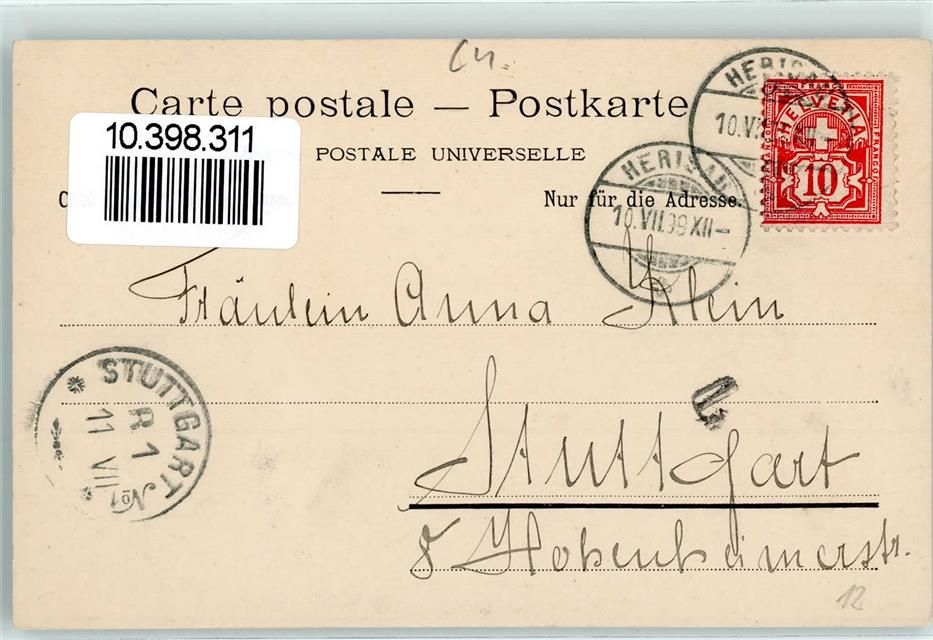 Cn.
Carte postale — Postkarte
10.398.311
POSTALE UNIVERSELLE
Nur für die Adresse.
HERISAU
10.VII.
HERISAU
10.VII.99 XII—
FRANCO
HELVETIA
FRANCO
FRANCO
10
Fräulein Anna Klein
STUTTGART
R 1
11 VII
No1
Stuttgart
8 Hohenheimerstr.
12